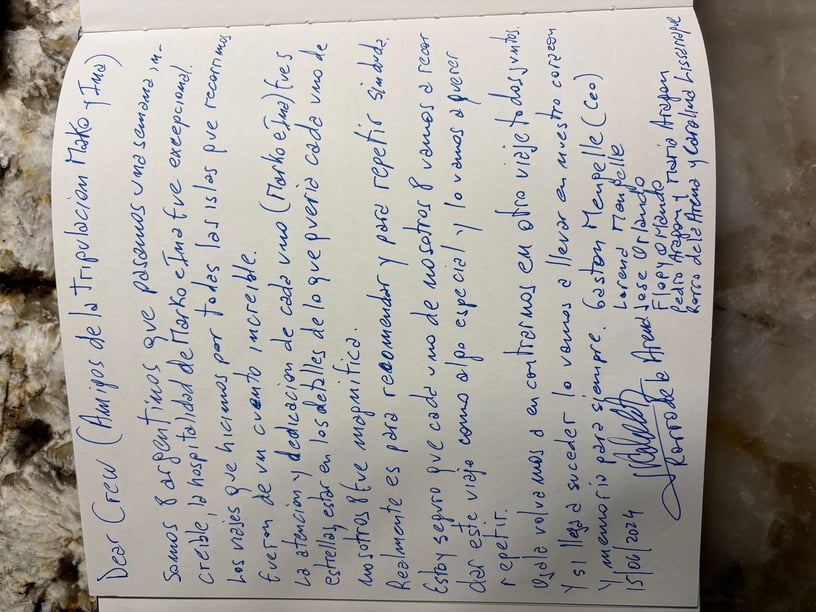 Dear Crew (Amigos de la tripulación Mako y Ina)
Somos 8 argentinos que pasamos una semana in-
creíble, la hospitalidad de Marko e Ina fue excepcional.
Los viajes que hicimos por todas las islas que recorrimos
fueron de un cuento increíble.
La atención y dedicación de cada uno (Marko e Ina) fue 5
estrellas, estar en los detalles de lo que quería cada uno de
nosotros 8 fue magnífica.
Realmente es para recomendar y para repetir sin duda.
Estoy seguro que cada uno de nosotros 8 vamos a recor
dar este viaje como algo especial y lo vamos a querer
repetir.
Ojalá volvamos a encontrarnos en otro viaje todos juntos.
Y si llega a suceder lo vamos a llevar en nuestro corazón
y memoria para siempre. Gaston Mengelle (Ceo)
15/06/2024 Lorena Mengelle
Jose Orlando
Flopy Orlando
Rorro de la Arena Pedro Aragon y Maria Aragon
Rorro de la Arena y Carolina Lisserrague